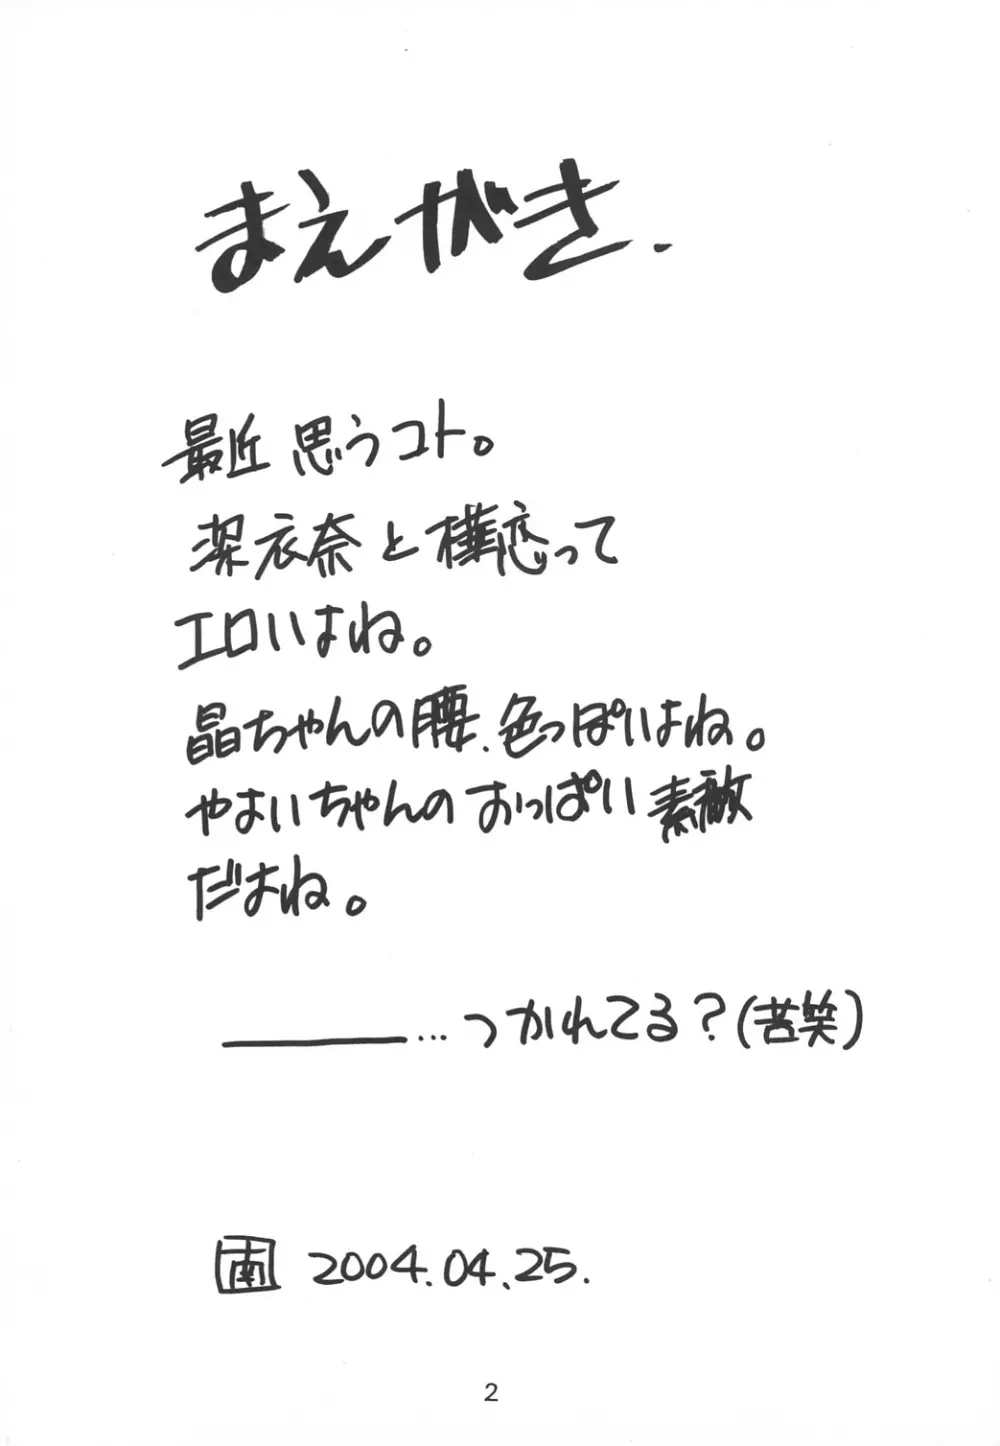 まえがき.
最近思うコト。
深衣奈と樺恋って
エロいよね。
晶ちゃんの腰、色っぽいよね。
やよいちゃんのおっぱい素敵
だよね。
―――…つかれてる？(苦笑)
南 2004.04.25.
2